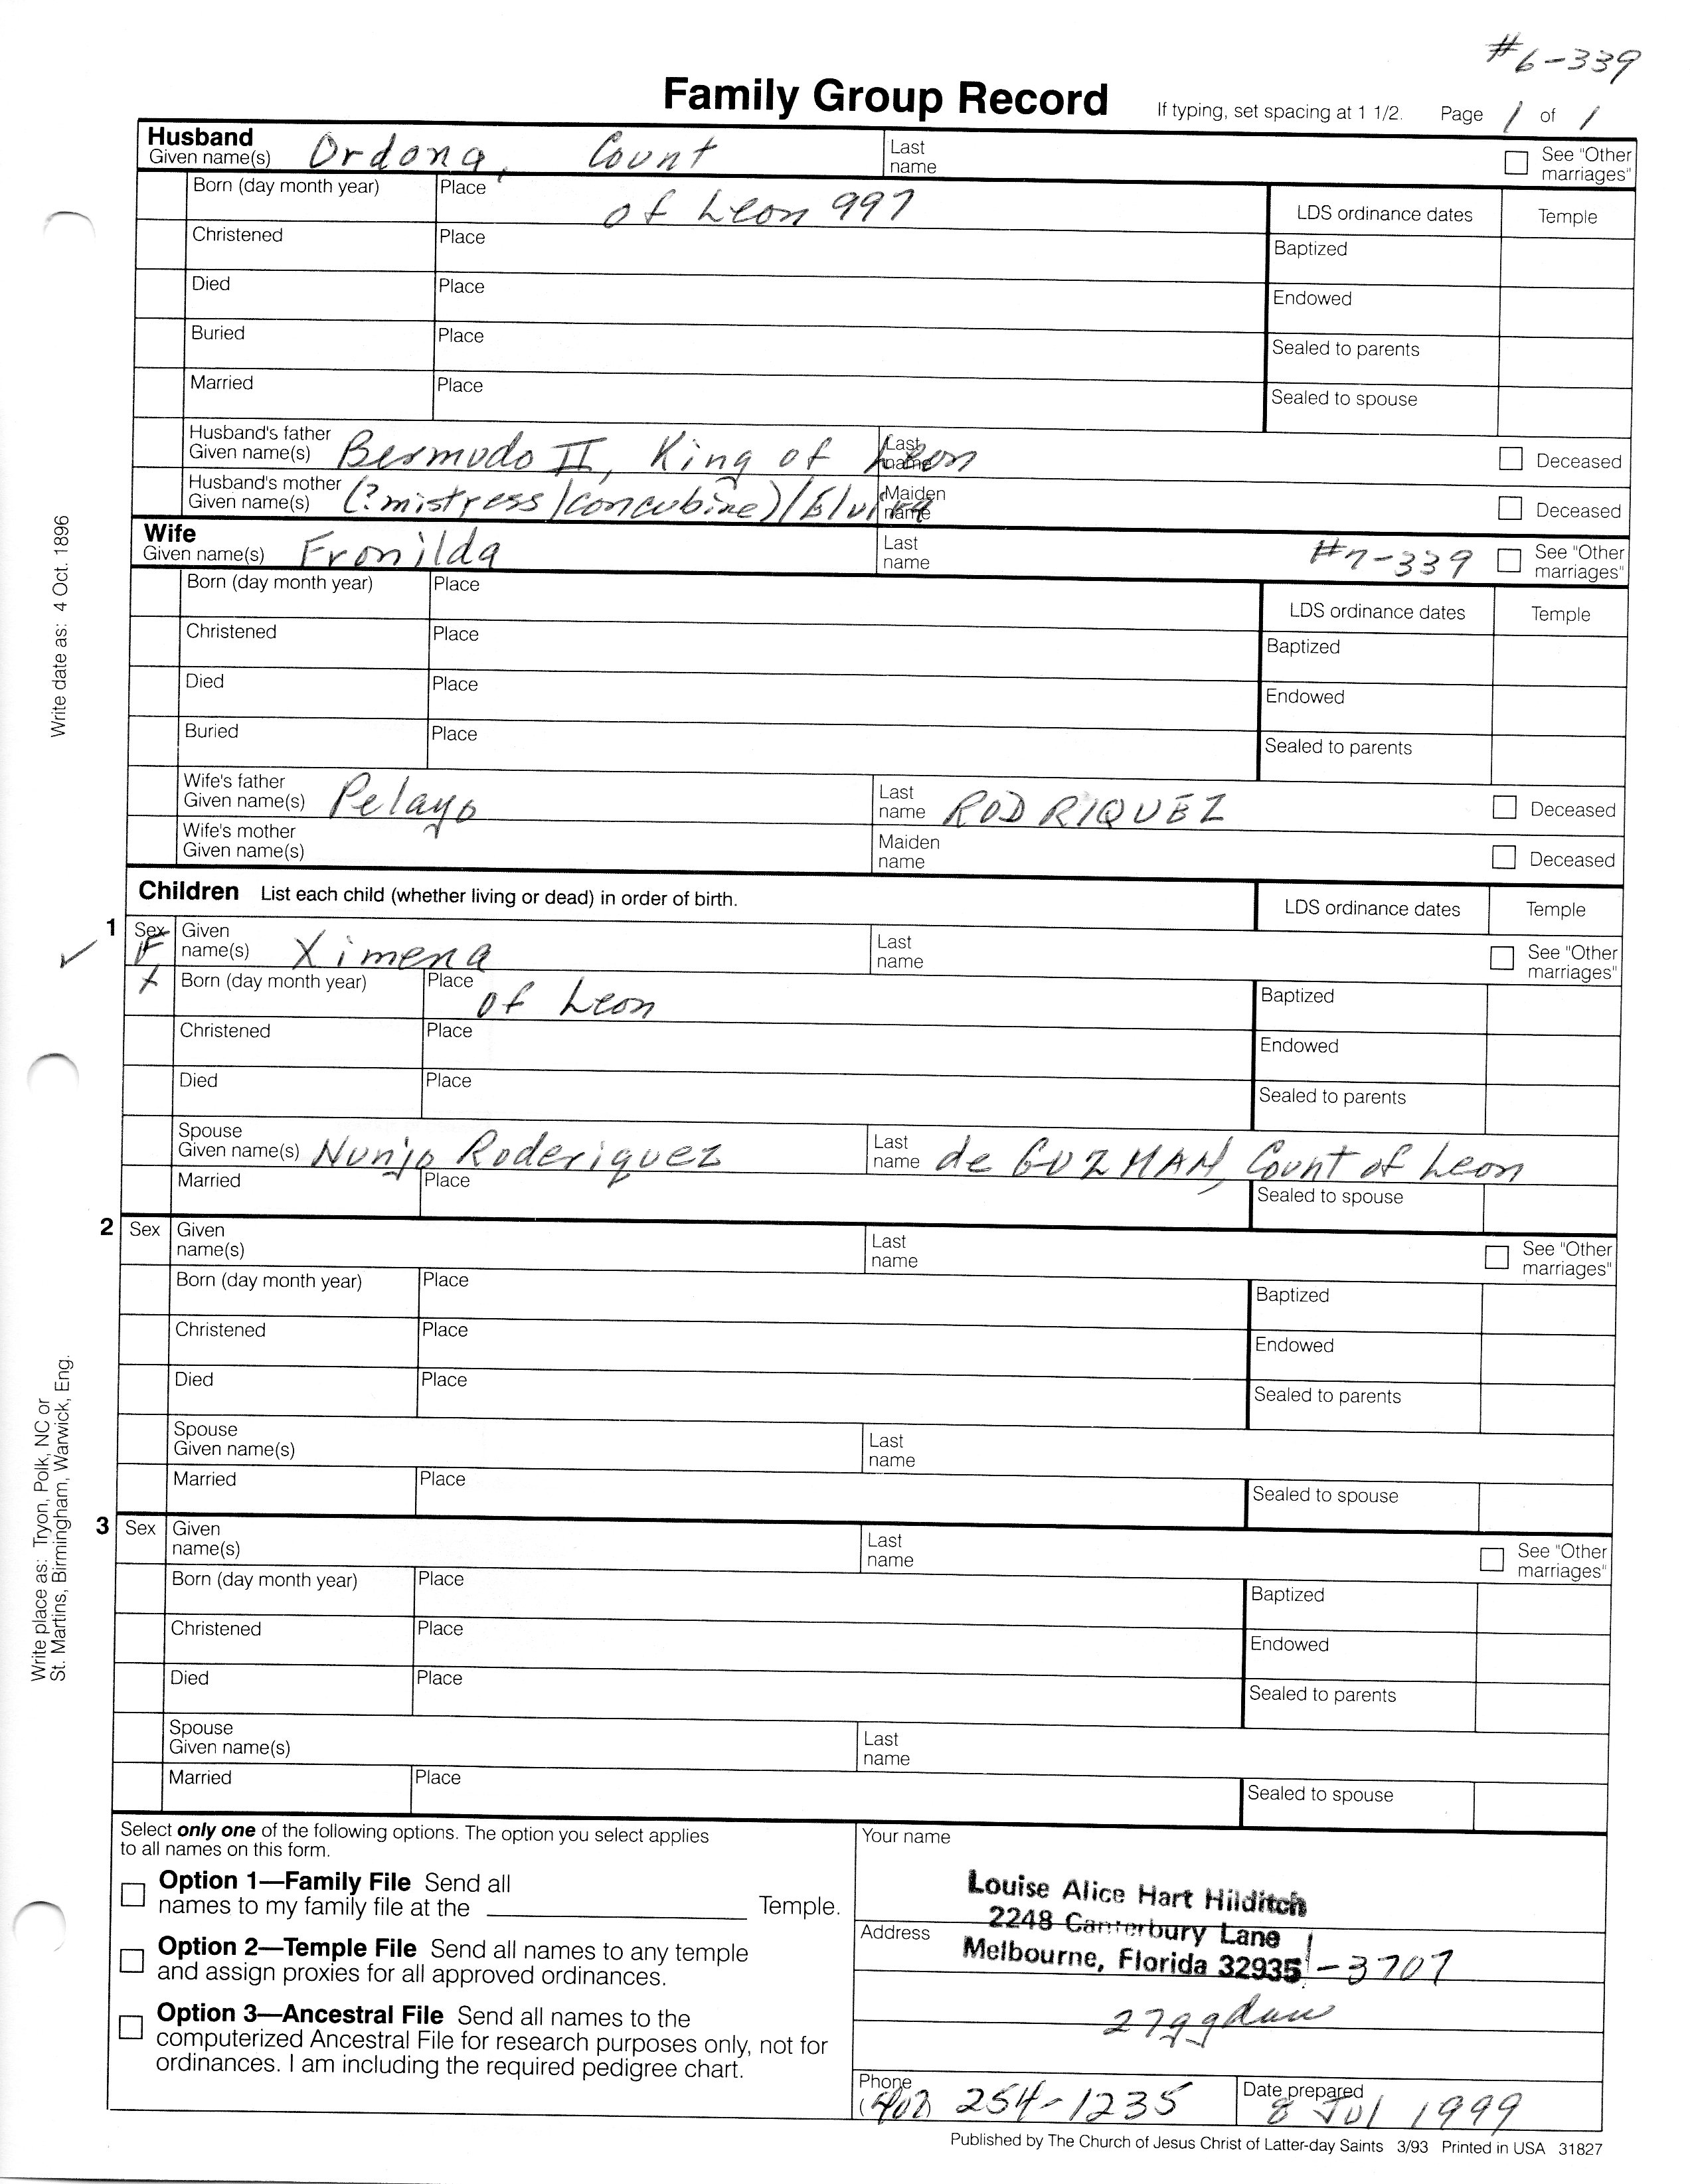 #6-339
Family Group Record If typing, set spacing at 1 1/2. Page 1 of 1
Husband
Given name(s) Ordona, Count Last name See "Other marriages"
Born (day month year) Place of Leon 997 LDS ordinance dates Temple
Christened Place Baptized
Died Place Endowed
Buried Place Sealed to parents
Married Place Sealed to spouse
Husband's father Given name(s) Bermudo II, King of Leon Last name Deceased
Husband's mother Given name(s) (?mistress/concubine)/Elvira Maiden name Deceased
Wife
Given name(s) Fronilda Last name #7-339 See "Other marriages"
Born (day month year) Place LDS ordinance dates Temple
Christened Place Baptized
Died Place Endowed
Buried Place Sealed to parents
Wife's father Given name(s) Pelayo Last name RODRIQUEZ Deceased
Wife's mother Given name(s) Maiden name Deceased
Children List each child (whether living or dead) in order of birth. LDS ordinance dates Temple
1 Sex F Given name(s) Ximena Last name See "Other marriages"
X Born (day month year) Place of Leon Baptized
Christened Place Endowed
Died Place Sealed to parents
Spouse Given name(s) Nunjo Roderiquez Last name de GUZMAN, Count of Leon
Married Place Sealed to spouse
2 Sex Given name(s) Last name See "Other marriages"
Born (day month year) Place Baptized
Christened Place Endowed
Died Place Sealed to parents
Spouse Given name(s) Last name
Married Place Sealed to spouse
3 Sex Given name(s) Last name See "Other marriages"
Born (day month year) Place Baptized
Christened Place Endowed
Died Place Sealed to parents
Spouse Given name(s) Last name
Married Place Sealed to spouse
Write date as: 4 Oct. 1896
Write place as: Tryon, Polk, NC or
St. Martins, Birmingham, Warwick, Eng.
Select only one of the following options. The option you select applies
to all names on this form.
Option 1—Family File Send all
names to my family file at the Temple.
Option 2—Temple File Send all names to any temple
and assign proxies for all approved ordinances.
Option 3—Ancestral File Send all names to the
computerized Ancestral File for research purposes only, not for
ordinances. I am including the required pedigree chart.
Your name
Louise Alice Hart Hilditch
Address 2248 Canterbury Lane
Melbourne, Florida 32935-3707
Phone (407) 254-1235 Date prepared 8 Jul 1999
Published by The Church of Jesus Christ of Latter-day Saints 3/93 Printed in USA 31827